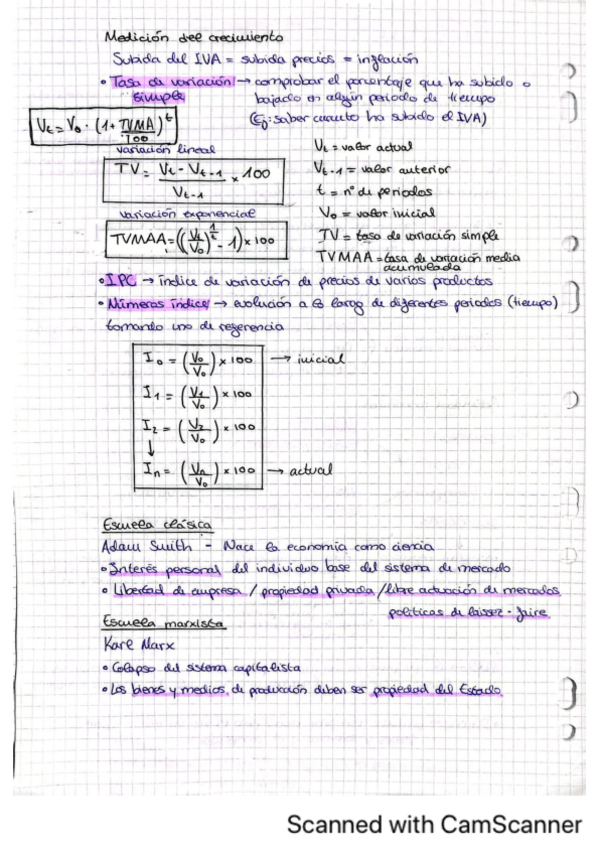 Medición del crecimiento
Subida del IVA = subida precios = inflación
• Tasa de variación → comprobar el porcentaje que ha subido o
simple
bajado en algún periodo de tiempo
(Ej: saber cuanto ha subido el IVA)
Vt = V0 · (1 + TVMA/100)^t
variación lineal
TV = (Vt - Vt-1)/Vt-1 × 100
variación exponencial
TVMAA = ((Vt/V0)^(1/t) - 1) × 100
Vt = valor actual
Vt-1 = valor anterior
t = nº de periodos
V0 = valor inicial
TV = tasa de variación simple
TVMAA = tasa de variación media
acumulada
• IPC → índice de variación de precios de varios productos
• Números índice → evolución a lo largo de diferentes periodos (tiempo)
tomando uno de referencia
I0 = (V0/V0) × 100 → inicial
I1 = (V1/V0) × 100
I2 = (V2/V0) × 100
↓
In = (Vn/V0) × 100 → actual
Escuela clásica
Adam Smith - Nace la economía como ciencia
• Interés personal del individuo base del sistema de mercado
• Libertad de empresa / propiedad privada / libre actuación de mercados
políticas de laissez-faire
Escuela marxista
Karl Marx
• Colapso del sistema capitalista
• Los bienes y medios de producción deben ser propiedad del Estado
Scanned with CamScanner